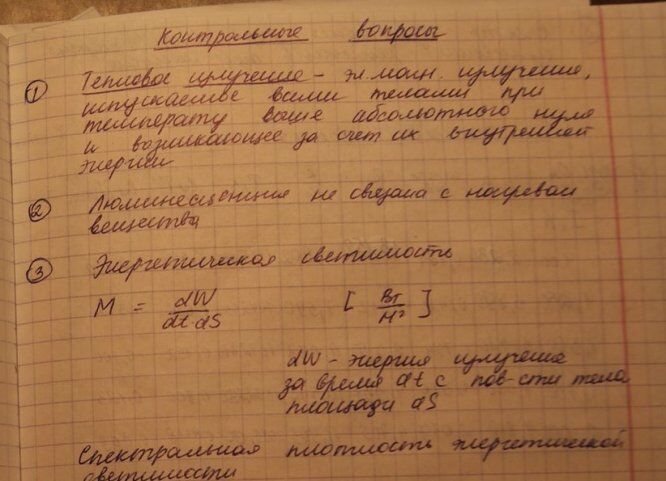 Контрольные вопросы
① Тепловое излучение – эл. магн. излучение,
испускаемое всеми телами при
температу выше абсолютного нуля
и возникающее за счет их внутренней
энергии
② Люминесценция не связана с нагревом
вещества
③ Энергетическая светимость
M = dW / dt·dS [Вт / м²]
dW – энергия излучение
за время dt с пов-сти тела
площади dS
Спектральная плотность энергетической
светимости